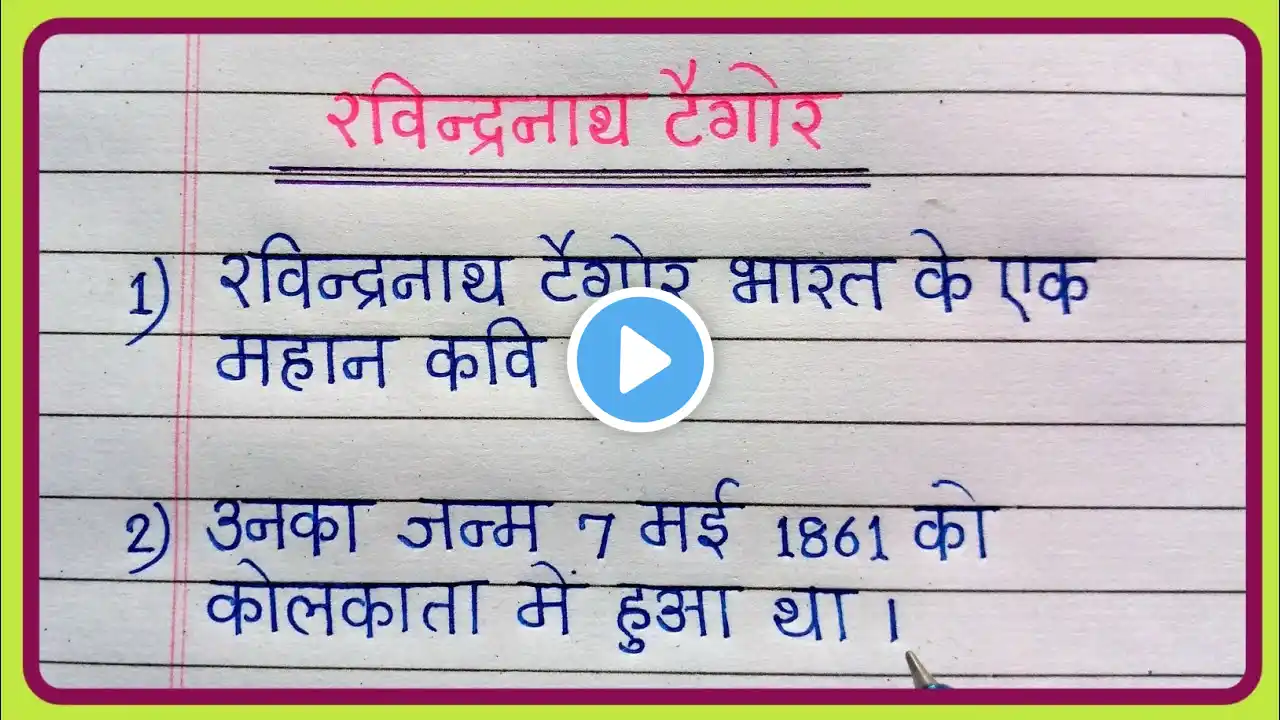 रविन्द्रनाथ टैगोर
1) रविन्द्रनाथ टैगोर भारत के एक
महान कवि
2) उनका जन्म 7 मई 1861 को
कोलकाता में हुआ था ।